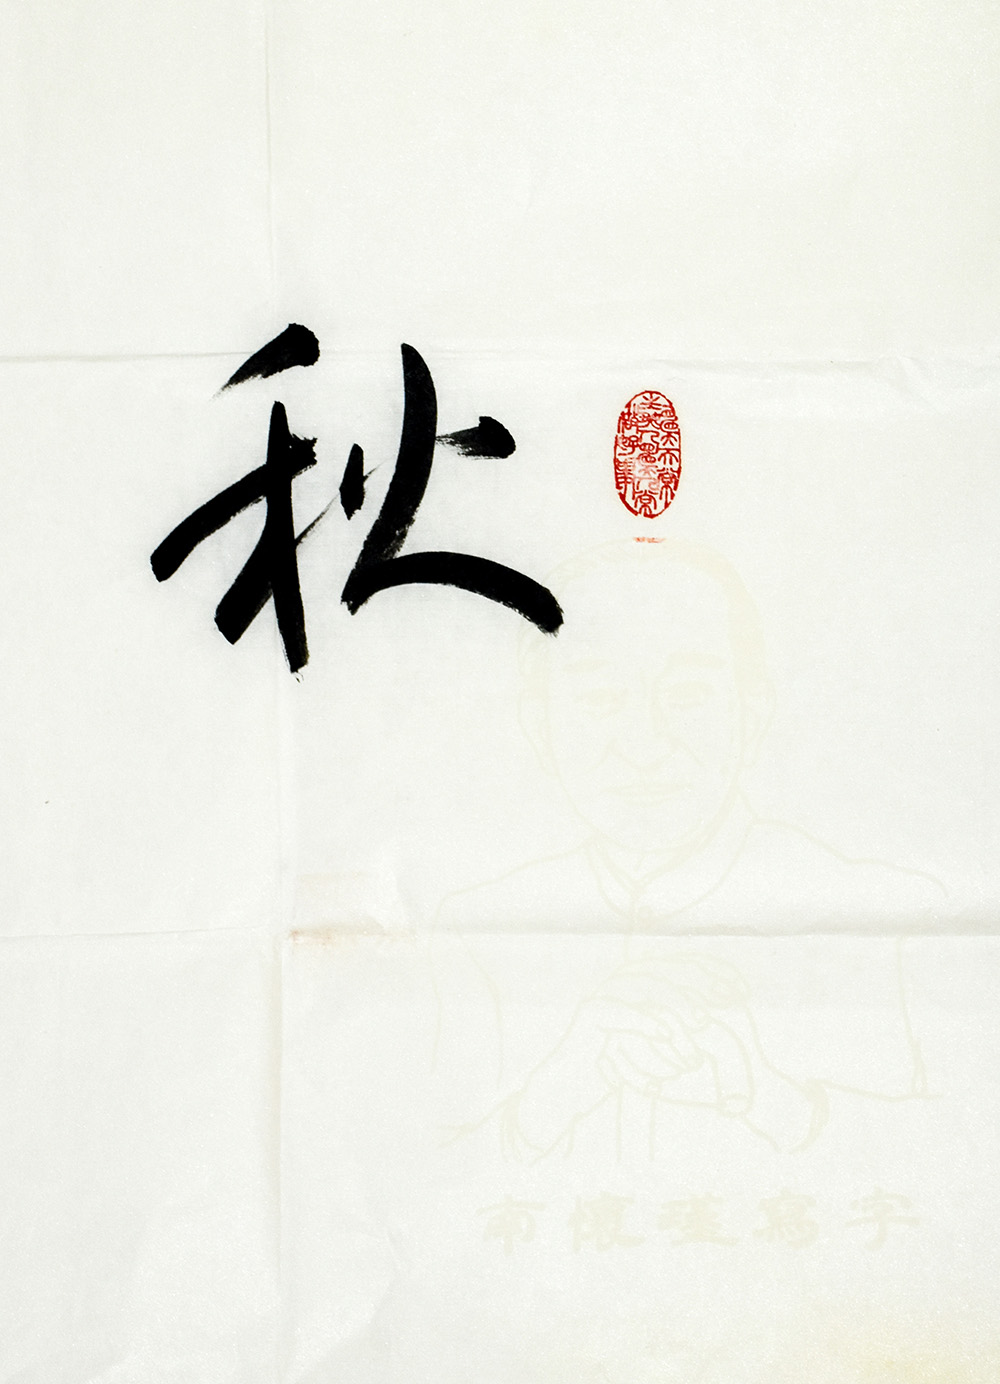 秋
南懷瑾寫字